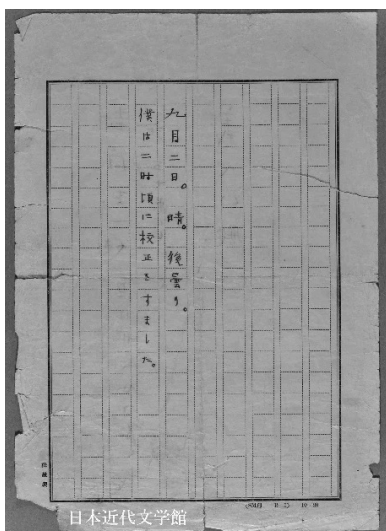 九月二日。晴。後曇り。
僕は二時頃に校正をすました。
日本近代文学館